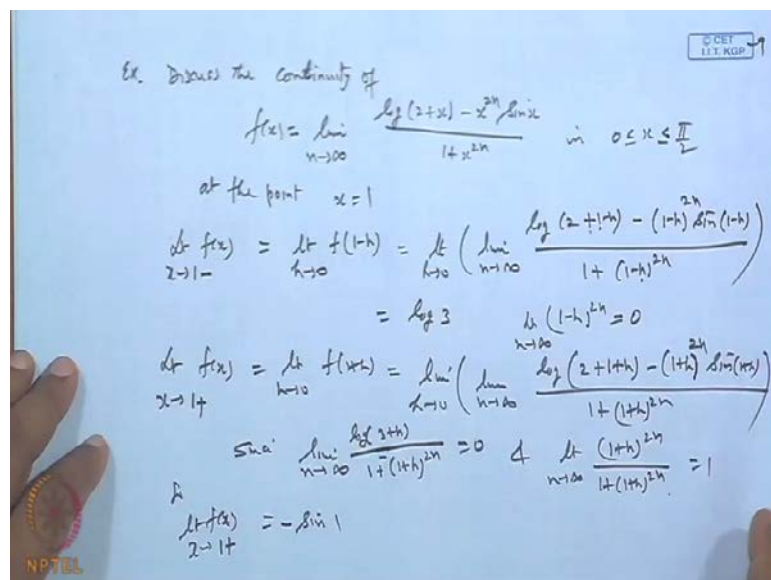 © CET
I.I.T. KGP
Ex. Discuss the continuity of
f(x) = lim n→∞ (log (2+x) - x^{2n} sin x) / (1+x^{2n}) in 0 ≤ x ≤ π/2
at the point x = 1
lt x→1- f(x) = lt h→0 f(1-h) = lt h→0 ( lim n→∞ (log (2+1-h) - (1-h)^{2n} sin (1-h)) / (1+(1-h)^{2n}) )
= log 3 lt n→∞ (1-h)^{2n} = 0
lt x→1+ f(x) = lt h→0 f(1+h) = lim h→0 ( lim n→∞ (log (2+1+h) - (1+h)^{2n} sin (1+h)) / (1+(1+h)^{2n}) )
Since lim n→∞ log(3+h) / (1+(1+h)^{2n}) = 0 & lt n→∞ (1+h)^{2n} / (1+(1+h)^{2n}) = 1
So
lt x→1+ f(x) = - sin 1
NPTEL